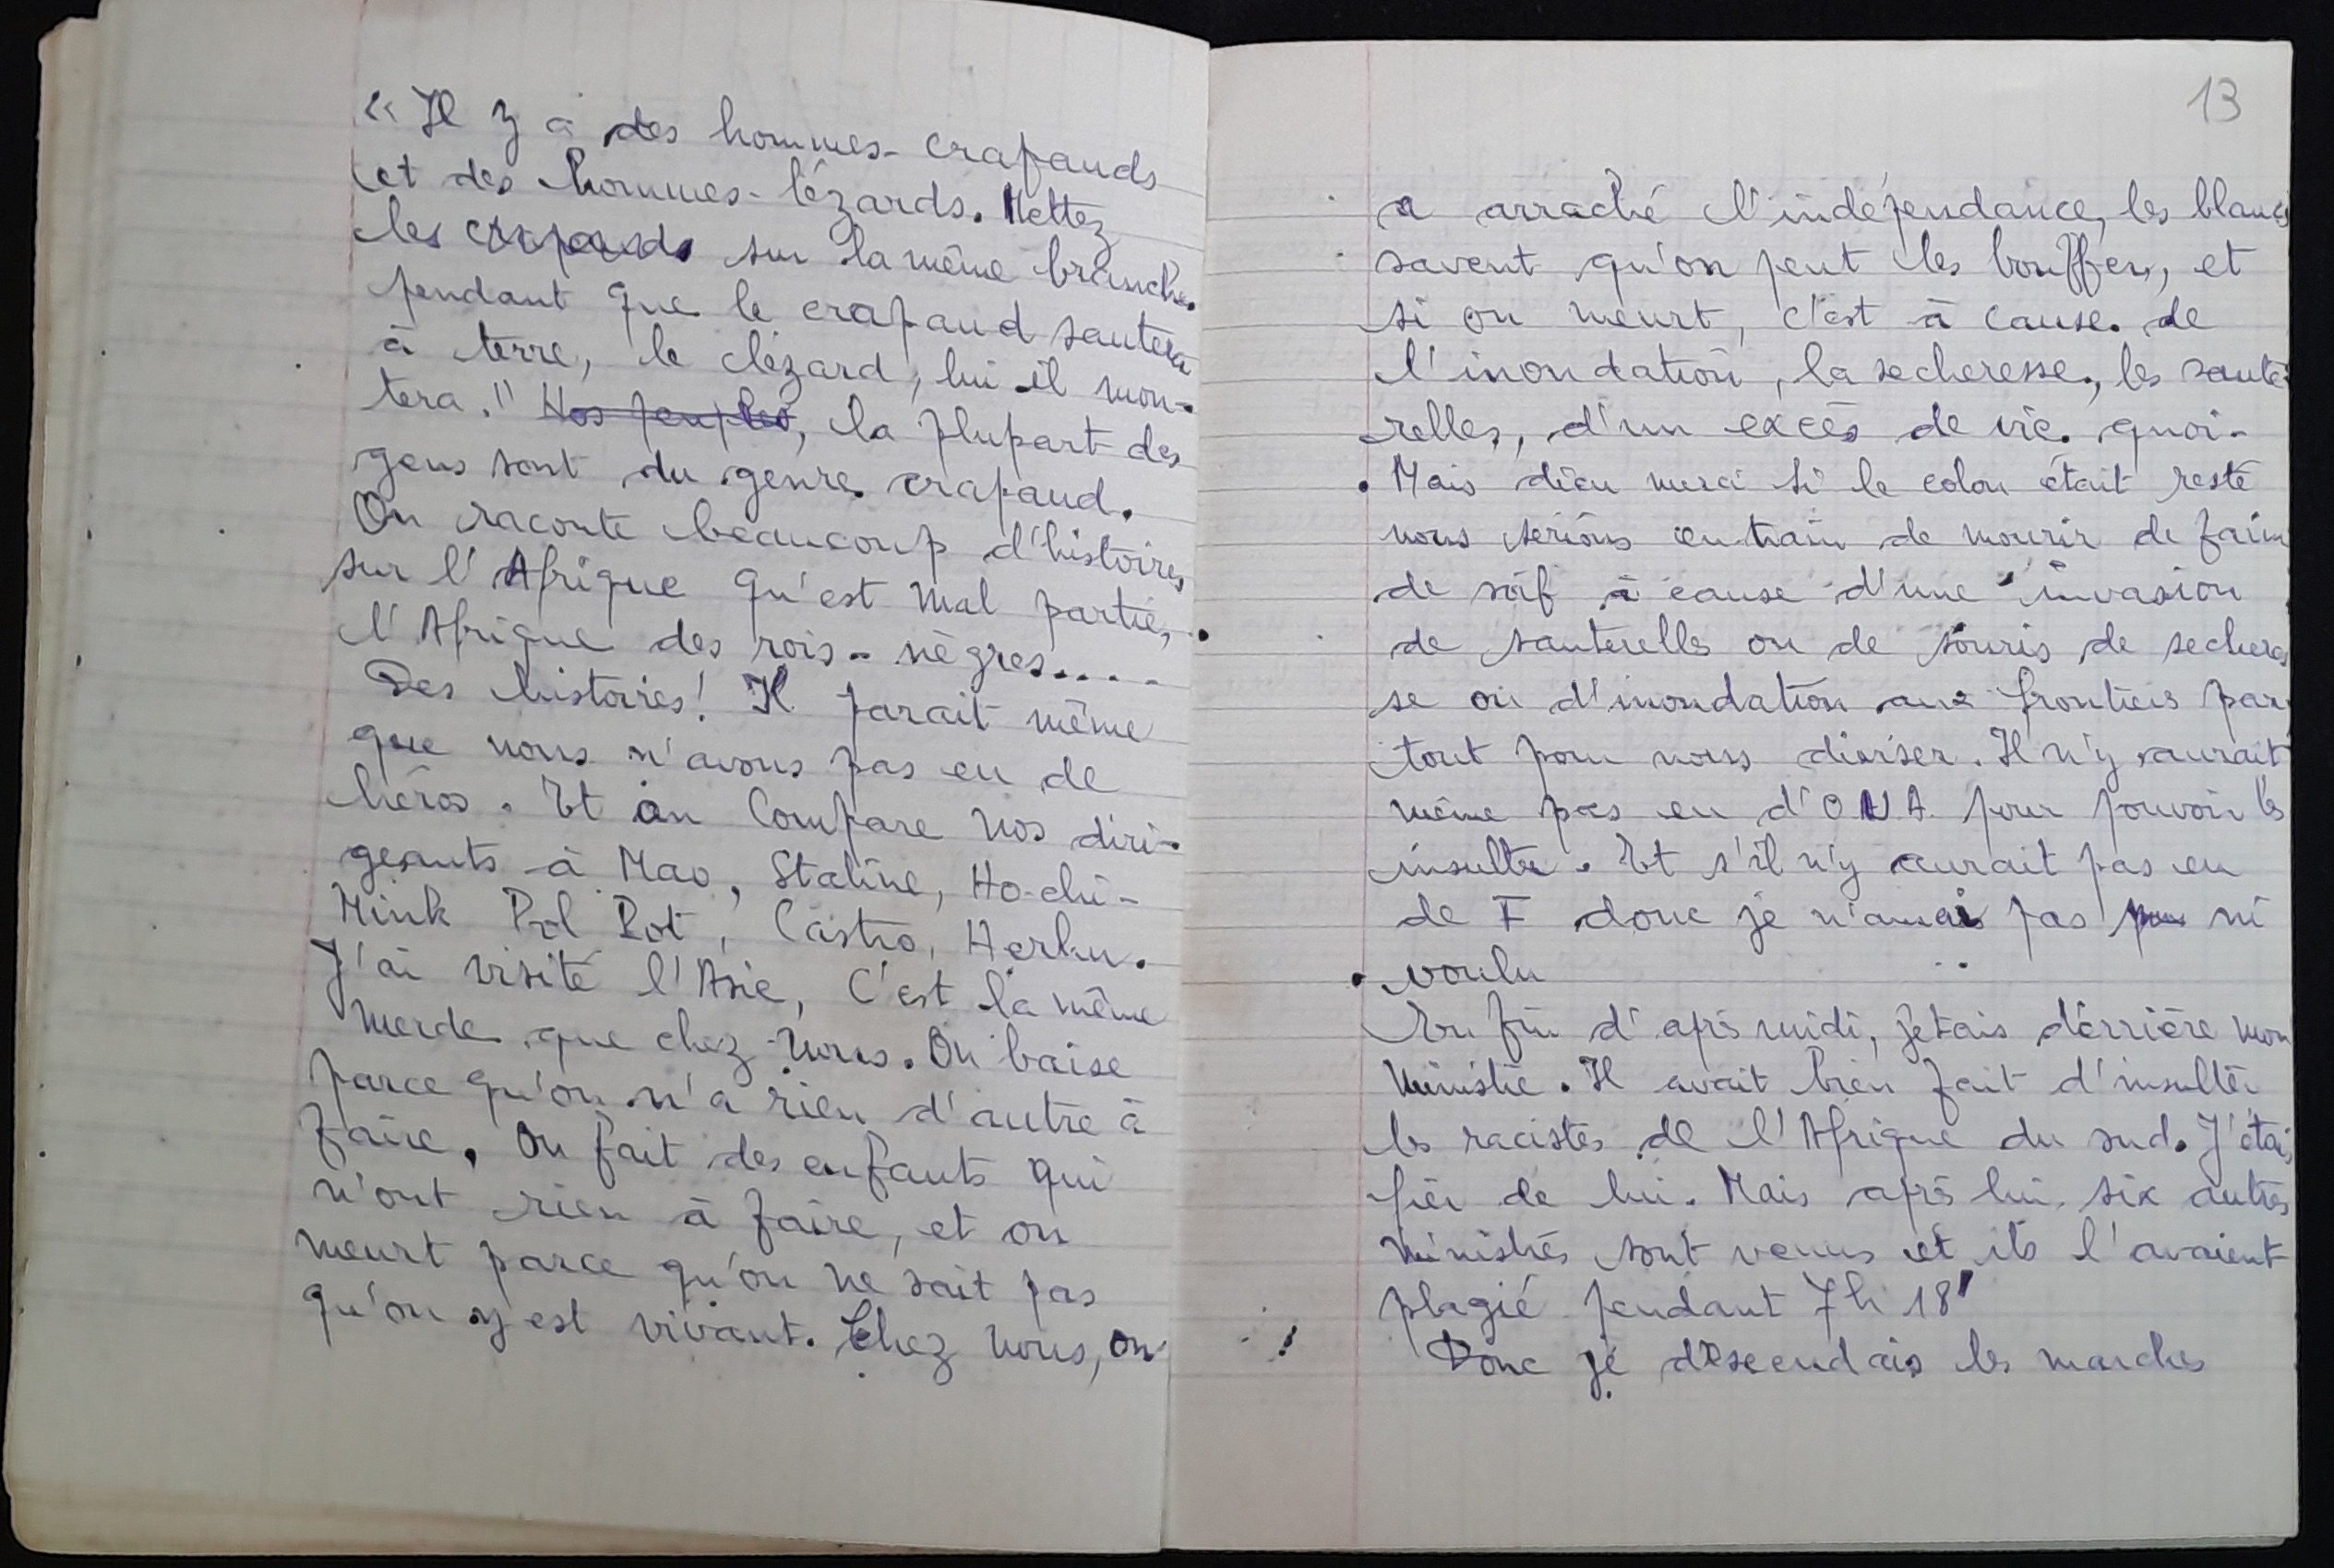 « Il y a des hommes-crapauds
et des hommes-lézards. Mettez
les sur la même branche.
pendant que le crapaud sautera
à terre, le lézard, lui il mon-
tera." Nos peuples, la plupart des
gens sont du genre crapaud.
On raconte beaucoup d'histoires
sur l'Afrique qu'est mal partie,
l'Afrique des rois-nègres....-
Des histoires! Il parait même
que nous n'avons pas eu de
héros. Et on compare nos diri-
geants à Mao, Staline, Ho-chi-
Mink Pol Pot, Castro, Nerhu.
J'ai visité l'Asie, C'est la même
merde que chez nous. On baise
parce qu'on n'a rien d'autre à
faire, On fait des enfants qui
n'ont rien à faire, et on
meurt parce qu'on ne sait pas
qu'on y est vivant. Chez nous, on
13
a arraché l'indépendance, les blancs
savent qu'on peut les bouffer, et
si on meurt, c'est à cause de
l'inondation, la secheresse, les saute-
relles, d'un excès de vie quoi-
Mais dieu merci si le colon était resté
nous serions en train de mourir de faim
de soif à cause d'une invasion
de sauterelles ou de souris de secheres
se ou d'inondation aux frontières par
tout pour nous diviser. Il n'y aurait
même pas eu d'O.U.A. pour pouvoir les
insulter. Et s'il n'y aurait pas eu
de F donc je n'aurais pas ni
voulu
En fin d'après midi, j'etais dérrière mon
ministre. Il avait bien fait d'insulter
les racistes de l'Afrique du sud. J'étais
fier de lui. Mais après lui six autres
ministres sont venus et ils l'avaient
plagié pendant 7h 18'
Donc je descendais les marches